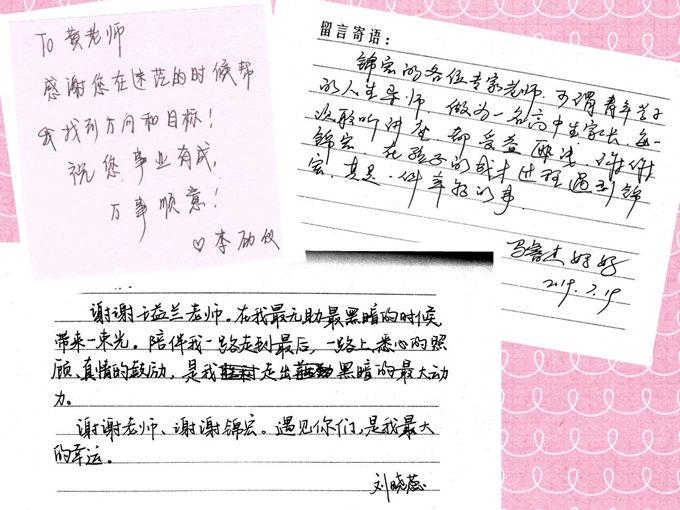 To 黄老师
感谢您在迷茫的时候帮
我找到方向和目标！
祝您 事业有成，
万事顺意！
♡ 李励仪
留言寄语：
锦宏的各位专家老师，可谓青年学子
的人生导师 做为一名高中生家长，每一
次聆听讲座 都受益匪浅，
锦宏 在孩子的成才进程遇到锦
宏，真是一件幸福的事．
妈妈
2019.7.19
谢谢益兰老师。在我最无助最黑暗的时候
带来一束光。陪伴我一路走到最后，一路上悉心的照
顾、真情的鼓励，是我走出黑暗的最大动
力。
谢谢老师、谢谢锦宏。遇见你们，是我最大
的幸运。
刘晓蕊